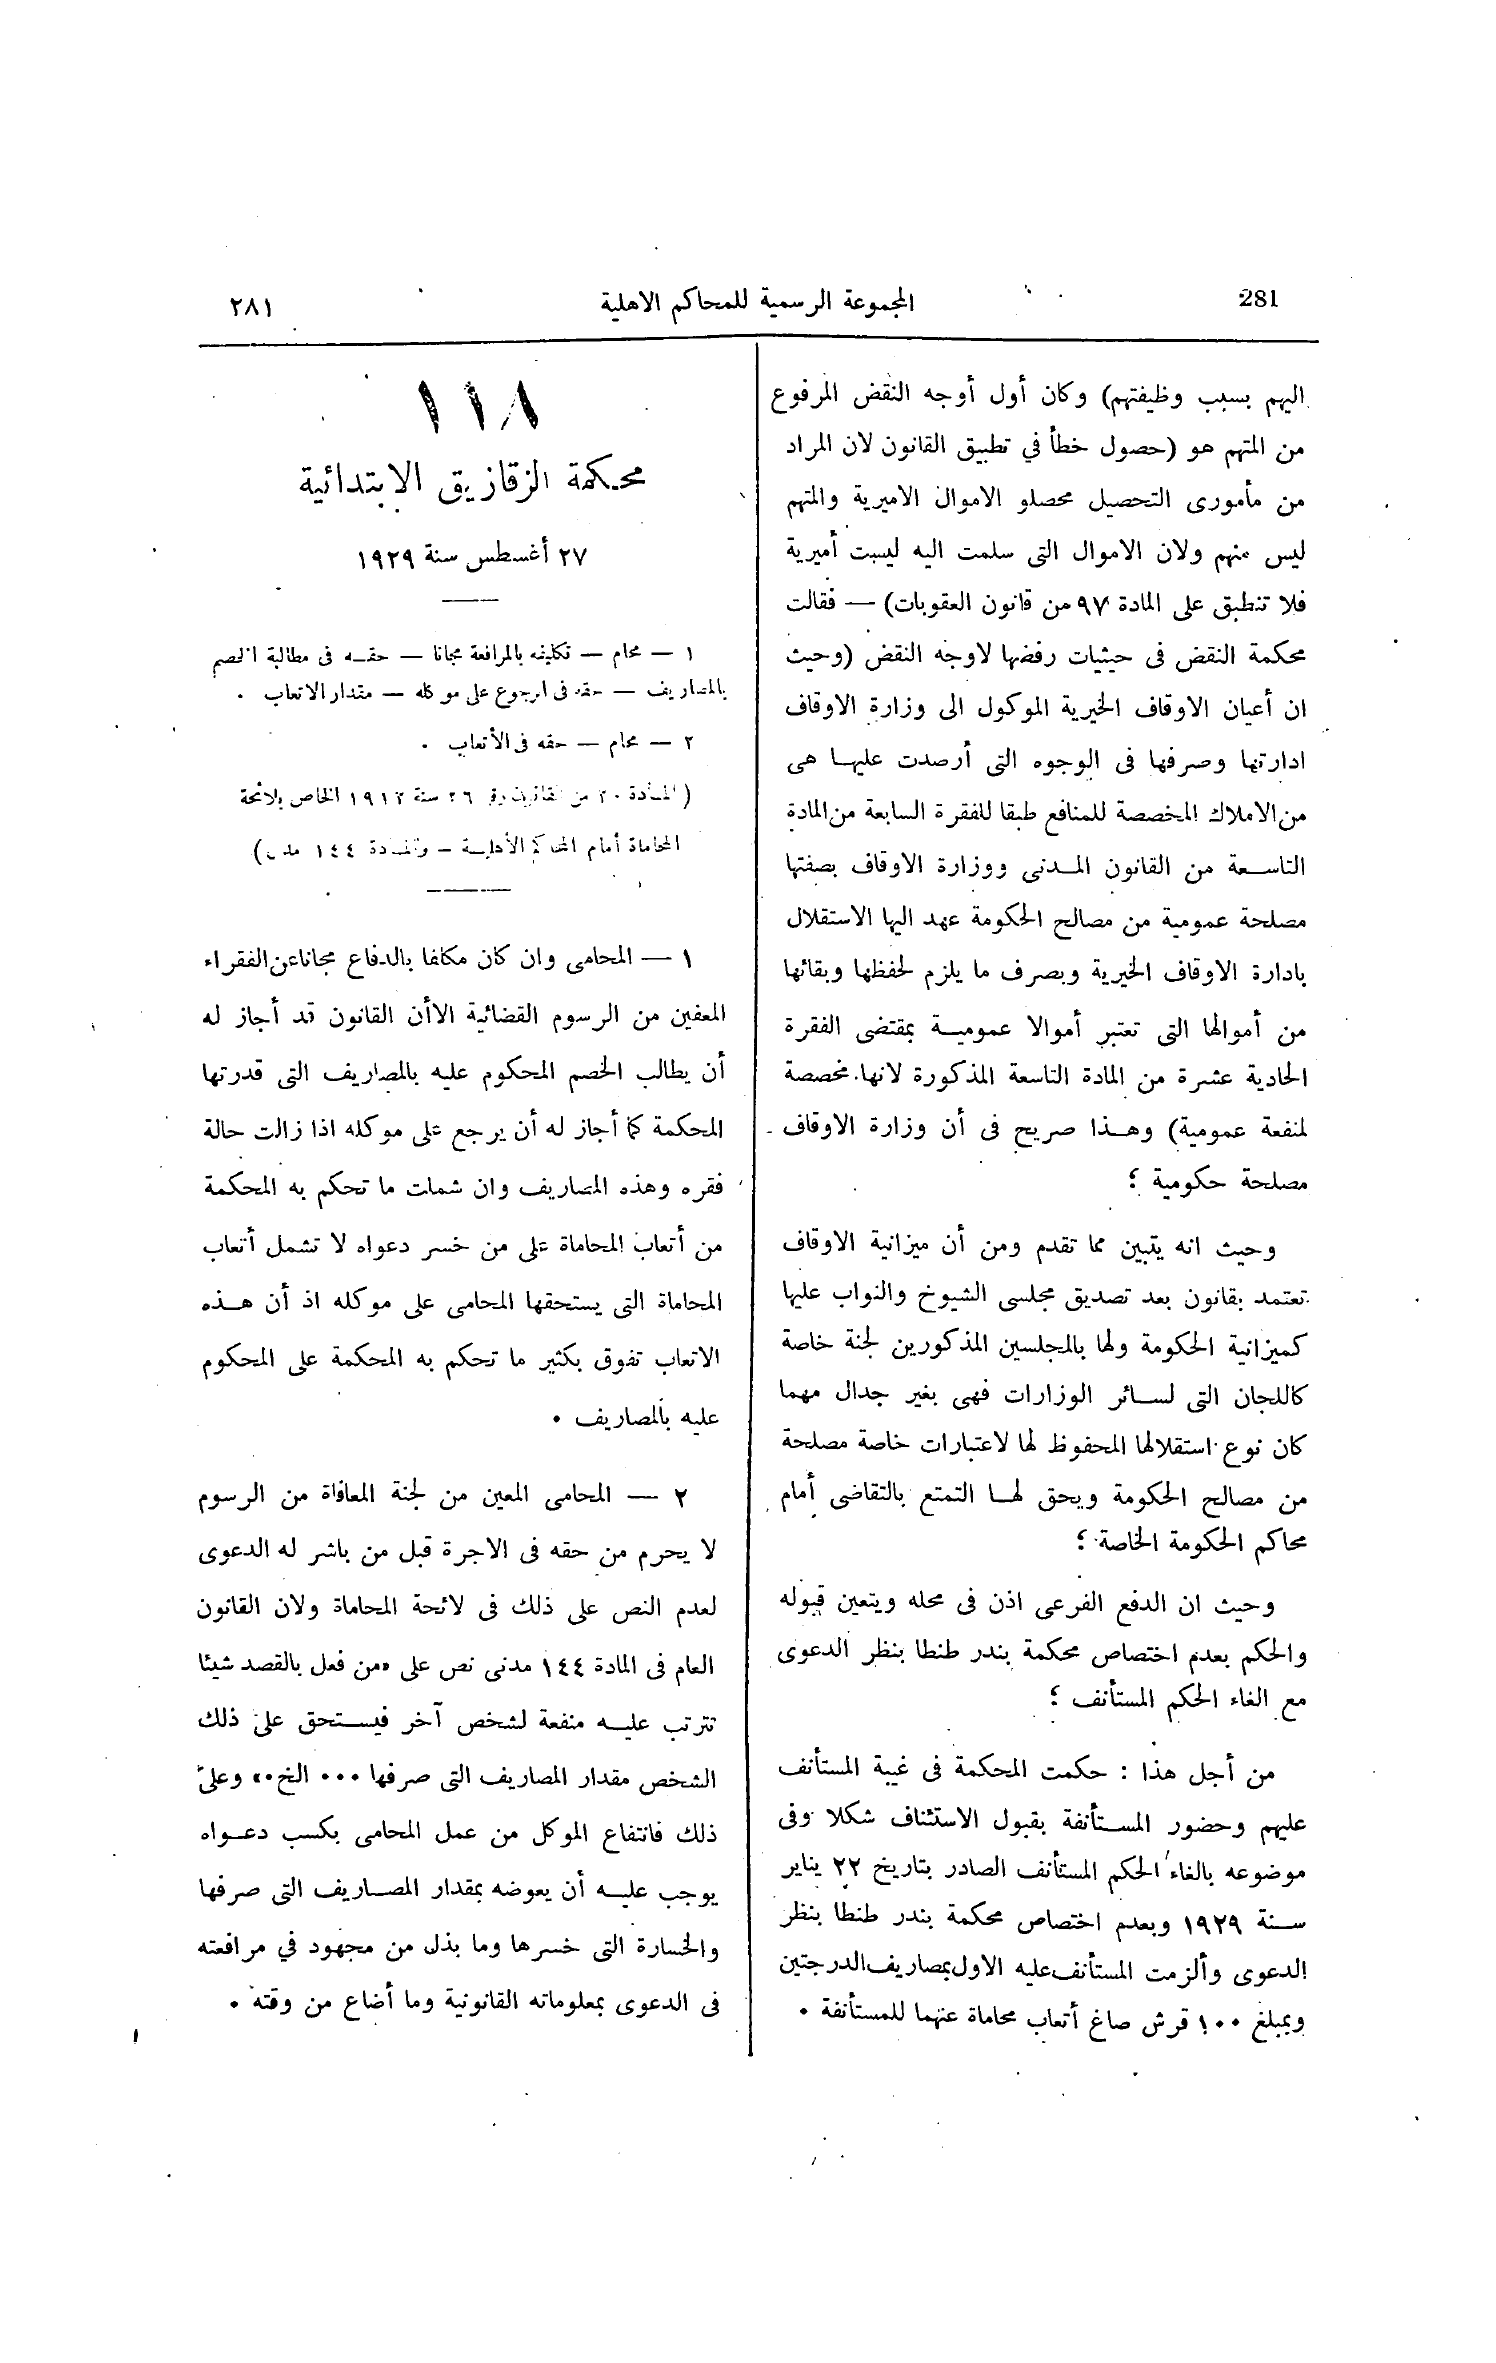 281
المجموعة الرسمية للمحاكم الاهلية
٢٨١
اليهم بسبب وظيفتهم) وكان أول أوجه النقض المرفوع
من المتهم هو (حصول خطأ في تطبيق القانون لان المراد
من مأمورى التحصيل محصلو الاموال الاميرية والمتهم
ليس منهم ولان الاموال التى سلمت اليه ليست أميرية
فلا تنطبق على المادة ٩٧ من قانون العقوبات) — فقالت
محكمة النقض فى حيثيات رفضها لاوجه النقض (وحيث
ان أعيان الاوقاف الخيرية الموكول الى وزارة الاوقاف
ادارتها وصرفها فى الوجوه التى أرصدت عليها هى
من الاملاك المخصصة للمنافع طبقا للفقرة السابعة من المادة
التاسعة من القانون المدنى ووزارة الاوقاف بصفتها
مصلحة عمومية من مصالح الحكومة عهد اليها الاستقلال
بادارة الاوقاف الخيرية وبصرف ما يلزم لحفظها وبقائها
من أموالها التى تعتبر أموالا عمومية بمقتضى الفقرة
الحادية عشرة من المادة التاسعة المذكورة لانها مخصصة
لمنفعة عمومية) وهذا صريح فى أن وزارة الاوقاف
مصلحة حكومية ؛
وحيث انه يتبين مما تقدم ومن أن ميزانية الاوقاف
تعتمد بقانون بعد تصديق مجلسى الشيوخ والنواب عليها
كميزانية الحكومة ولها بالمجلسين المذكورين لجنة خاصة
كاللجان التى لسائر الوزارات فهى بغير جدال مهما
كان نوع استقلالها المحفوظ لها لاعتبارات خاصة مصلحة
من مصالح الحكومة ويحق لها التمتع بالتقاضى أمام
محاكم الحكومة الخاصة ؛
وحيث ان الدفع الفرعى اذن فى محله ويتعين قبوله
والحكم بعدم اختصاص محكمة بندر طنطا بنظر الدعوى
مع الغاء الحكم المستأنف ؛
من أجل هذا : حكمت المحكمة فى غيبة المستأنف
عليهم وحضور المستأنفة بقبول الاستئناف شكلا وفى
موضوعه بالغاء الحكم المستأنف الصادر بتاريخ ٢٢ يناير
سنة ١٩٢٩ وبعدم اختصاص محكمة بندر طنطا بنظر
الدعوى وألزمت المستأنف عليه الاول بمصاريف الدرجتين
وبمبلغ ١٠٠ قرش صاغ أتعاب محاماة عنهما للمستأنفة .
١١٨
محكمة الزقازيق الابتدائية
٢٧ أغسطس سنة ١٩٢٩
١ — محام — تكليفه بالمرافعة مجانا — حقه فى مطالبة الخصم
بالمصاريف — حقه فى الرجوع على موكله — مقدار الاتعاب .
٢ — محام — حقه فى الأتعاب .
(المادة ٢٠ من القانون رقم ٢٦ سنة ١٩١٢ الخاص بلائحة
المحاماة أمام المحاكم الأهلية — والمادة ١٤٤ مدنى)
١ — المحامى وان كان مكلفا بالدفاع مجانا عن الفقراء
المعفين من الرسوم القضائية الا أن القانون قد أجاز له
أن يطالب الخصم المحكوم عليه بالمصاريف التى قدرتها
المحكمة كما أجاز له أن يرجع على موكله اذا زالت حالة
فقره وهذه المصاريف وان شملت ما تحكم به المحكمة
من أتعاب المحاماة على من خسر دعواه لا تشمل أتعاب
المحاماة التى يستحقها المحامى على موكله اذ أن هذه
الاتعاب تفوق بكثير ما تحكم به المحكمة على المحكوم
عليه بالمصاريف .
٢ — المحامى المعين من لجنة المعافاة من الرسوم
لا يحرم من حقه فى الاجرة قبل من باشر له الدعوى
لعدم النص على ذلك فى لائحة المحاماة ولان القانون
العام فى المادة ١٤٤ مدنى نص على «من فعل بالقصد شيئا
تترتب عليه منفعة لشخص آخر فيستحق على ذلك
الشخص مقدار المصاريف التى صرفها ... الخ.» وعلى
ذلك فانتفاع الموكل من عمل المحامى بكسب دعواه
يوجب عليه أن يعوضه بمقدار المصاريف التى صرفها
والخسارة التى خسرها وما بذل من مجهود في مرافعته
فى الدعوى بمعلوماته القانونية وما أضاع من وقته .